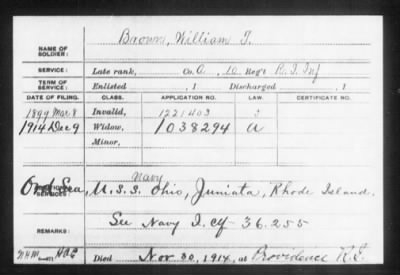 Brown, William T.
NAME OF SOLDIER:
SERVICE: Late rank, Co. A, 10 Reg't R. I. Inf
TERM OF SERVICE: Enlisted , 1 Discharged , 1
DATE OF FILING. CLASS. APPLICATION NO. LAW. CERTIFICATE NO.
1899 Mar 8 Invalid, 1221403
1914 Dec 9 Widow, 1038294 a
Minor,
Navy
Ord. Sea, U.S.S. Ohio, Juniata, Rhode Island.
SERVICES:
See Navy I. Cf 36.255
REMARKS:
Died Nov. 30, 1914, at Providence R.I.